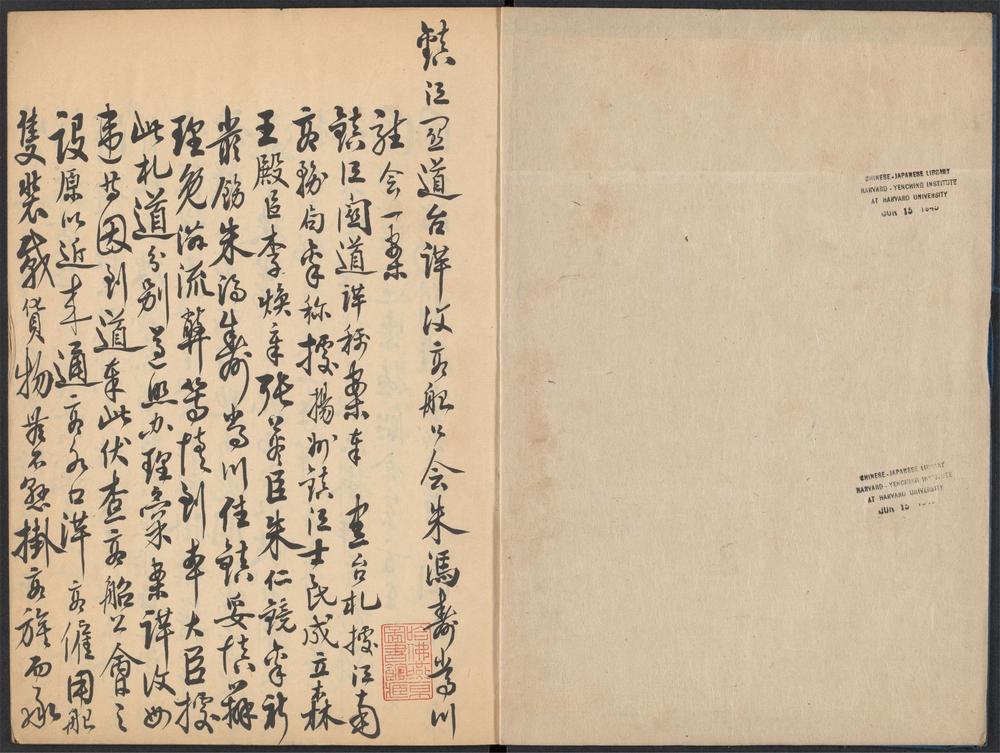 鎮江关道台详汶商船公会朱馮壽嵩川
班会一案
鎮江関道詳称案奉 憲台札據江南
商務局案称據揚州鎮江士民成立森
王殿臣李煥章张善臣朱仁鏡案祈
嚴飭朱馮壽嵩川住鎮妥慎辦
理免滋流弊等情到本大臣據
此札道分别遵照办理案詳汶
等因到道奉此伏查商船公會之
設原以近来通商各口洋商僱用船
隻装載貨物無不懸掛商旗而
哈佛燕京圖書館
CHINESE-JAPANESE LIBRARY
HARVARD-YENCHING INSTITUTE
AT HARVARD UNIVERSITY
JUN 15 1940
CHINESE-JAPANESE LIBRARY
HARVARD-YENCHING INSTITUTE
AT HARVARD UNIVERSITY
JUN 15